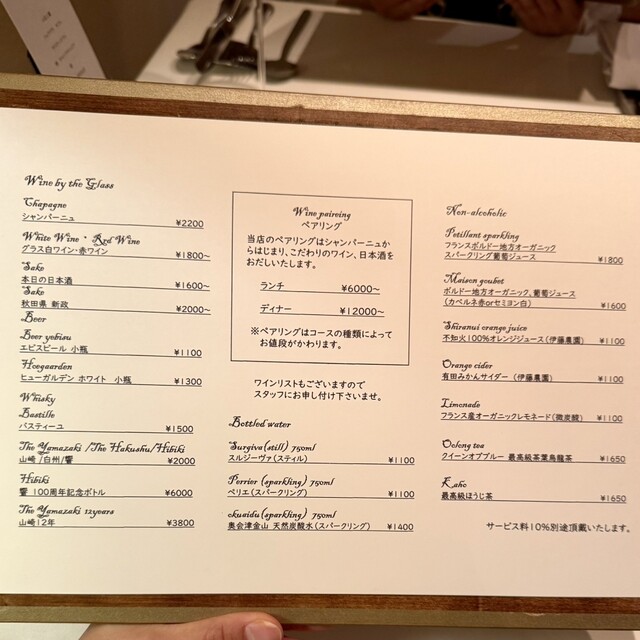 Wine by the Glass
Chapagne
シャンパーニュ ¥2200
White Wine・Red Wine
グラス白ワイン・赤ワイン ¥1800~
Sake
本日の日本酒 ¥1600~
Sake
秋田県 新政 ¥2000~
Beer
Beer yebisu
エビスビール 小瓶 ¥1100
Hoegaarden
ヒューガルデン ホワイト 小瓶 ¥1300
Whisky
Bastille
バスティーユ ¥1500
The Yamazaki /The Hakushu/Hibiki
山崎/白州/響 ¥2000
Hibiki
響 100周年記念ボトル ¥6000
The Yamazaki 12years
山崎12年 ¥3800
Wine paireing
ペアリング
当店のペアリングはシャンパーニュか
らはじまり、こだわりのワイン、日本酒を
おだしいたします。
ランチ ¥6000~
ディナー ¥12000~
※ペアリングはコースの種類によって
お値段がかわります。
ワインリストもございますので
スタッフにお申し付け下さいませ。
Bottled water
Surgiva(still) 750ml
スルジーヴァ(スティル) ¥1100
Perrier (sparkling) 750ml
ペリエ(スパークリング) ¥1100
okuaidu(sparkling) 750ml
奥会津金山 天然炭酸水(スパークリング) ¥1400
Non-alcoholic
Petillant sparkling
フランスボルドー地方オーガニック
スパークリング葡萄ジュース ¥1800
Maison goubet
ボルドー地方オーガニック、葡萄ジュース
(カベルネ赤orセミヨン白) ¥1600
Shiranui orange juice
不知火100%オレンジジュース(伊藤農園) ¥1100
Orange cider
有田みかんサイダー (伊藤農園) ¥1100
Limonade
フランス産オーガニックレモネード(微炭酸) ¥1100
Oolong tea
クイーンオブブルー 最高級茶葉烏龍茶 ¥1650
Kaho
最高級ほうじ茶 ¥1650
サービス料10%別途頂戴いたします。